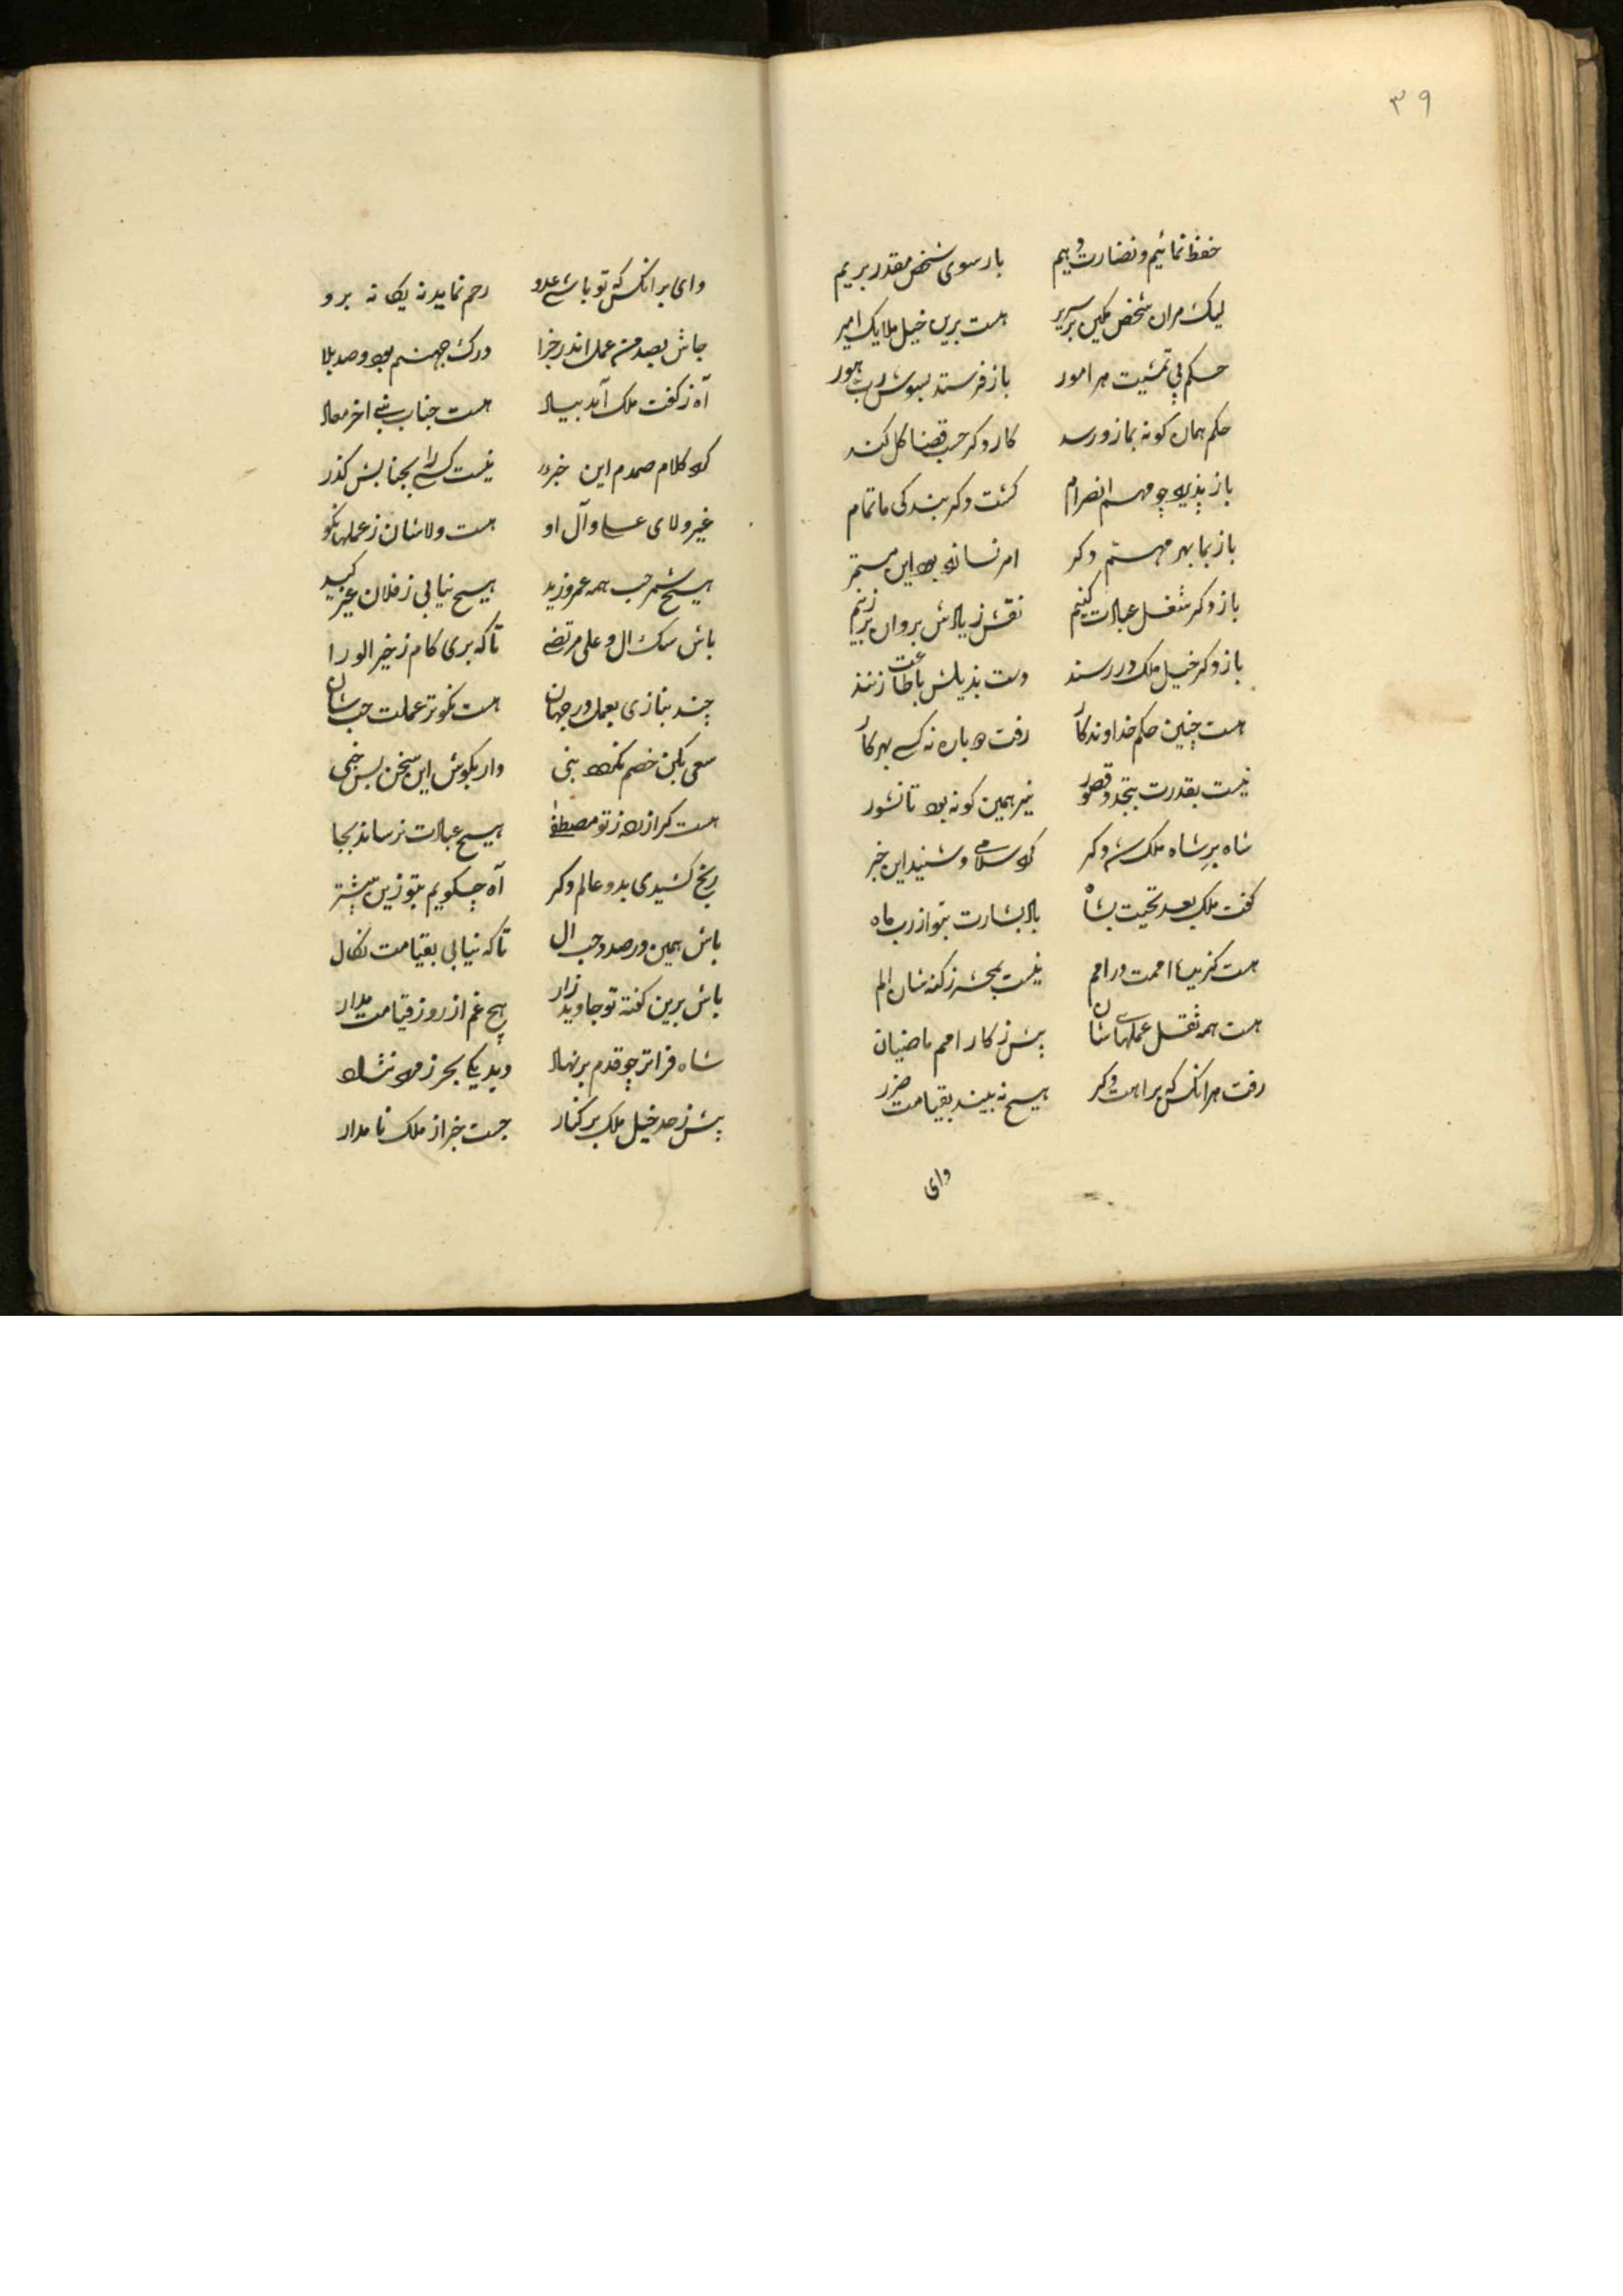 ۳۹
حفظ نمائیم و نضارت دهیم بار سوی شخص مقدر بریم
لیک مران شخص مکین بر سریر هست برین خیل ملایک امیر
حکم پی تمشیت هر امور باز فرستد بسوش رب
حکم همان گونه بما زو رسد کار دگر حسب قضا گل کند
باز پذیرد چو مهم انصرام گشت دگر بندگی ما تمام
باز بما بهر مهم دگر امر نساند بود این مستمر
باز دگر شغل عبادت کنیم نقش زیادش بروان بر زنیم
باز دگر خیل ملک در رسند دست بذیلش باطاعت زنند
هست چنین حکم خداوندگار رفت دوباره نه کسے بهر کار
نیست بقدرت بتجدد قصور نیز همین گونه بود تا نشور
شاه بر شاه ملک شد دگر کرد سلامی و شنید این خبر
گفت ملک بعد تحیت بشاه باد بشارت بتو از رب ماه
هست گزیده امتت در امم نیست بمحشر ز گنه شان الم
هست همه ثقل عملهای شان پیش ز کار امم ماضیان
رفت هر انکس که براهت دگر هیچ نه بیند بقیامت ضرر
وای
وای بر انکس که تو باشے عدو رحم نماید نه یک نه برو
جاش بصد من عمل اندر جزا درک جهنم بود و صد بلا
آه ز گفت ملک آمد بیاد هست جناب نبی اخر معاد
کرد کلام صمدم این خبر نیست کسے را بجنابش گذر
غیر ولای علی و آل او هست ولاشان ز عملها نکو
هیچ شمر حب همه عمرو زید هیچ نیابی ز فلان غیر کید
باش سگ ال و علی مرتضے تا که بری کام ز خیر الورا
چند بنازی بعمل در جهان هست نکوتر عملت حب شان
سعی بکن خصم نگردد بنی دار بگوش این سخن بس خفی
هست گر ازرده ز تو مصطفے هیچ عبادت نرساند بجا
رنج کشیدی بدو عالم دگر آه چگویم بتو زین بیشتر
باش همین در صدد حب ال تا که نیابی بقیامت نکال
باش برین گفته تو جاوید زار هیچ غم از روز قیامت مدار
شاه فراتر چو قدم بر نهاد دید یکا بحر ز مد نشاد
پیش ز حد خیل ملک بر کنار جست خبر از ملک نامدار